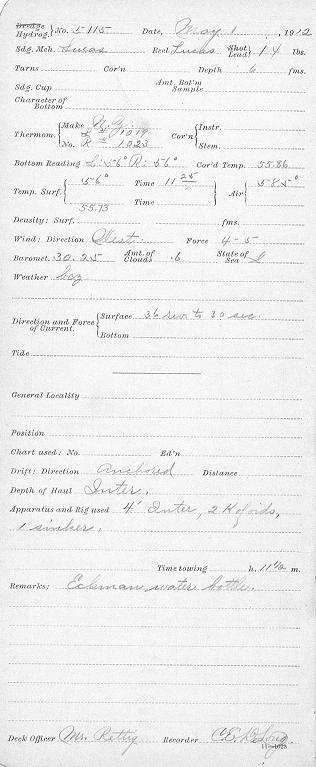 Dredge
Hydrog. } No. 5115 Date, May 1, 1912
Sdg. Mch. Lucas Reel Lucas Shot Lead } 14 lbs.
Turns Cor'n Depth 6 fms.
Sdg. Cup Amt. Bot'm Sample
Character of Bottom
Thermom. { Make N.Z. Cor'n { Instr.
No. L # 1019 R # 1023 Stem.
Bottom Reading L: 56° R: 56° Cor'd Temp. 55.86
Temp. Surf. { 56° Time 11 25 Air { 58.5°
55.73 Time
Density: Surf. fms.
Wind: Direction West. Force 4-5
Baromet. 30.25 Amt. of Clouds .6 State of Sea S
Weather bcz
Direction and Force of Current. { Surface 36 rev. to 30 sec.
Bottom
Tide
General Locality
Position
Chart used: No. Ed'n
Drift: Direction Anchored Distance
Depth of Haul Inter.
Apparatus and Rig used 4' Inter, 2 Kofoids,
1 sinker.
Time towing h. m.
Remarks: Eckman water bottle.
Deck Officer Mr. Rettig Recorder C.E. DeLong
11—1023